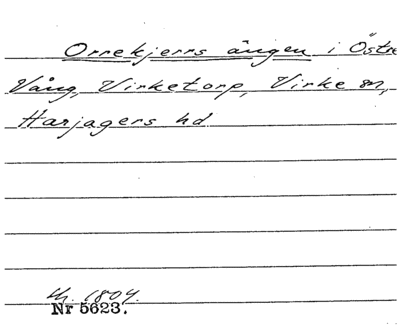 Orrekjerrs ängen i Östre
Vång, Virketorp, Virke sn,
Harjagers hd
1804.
Nr 5623.